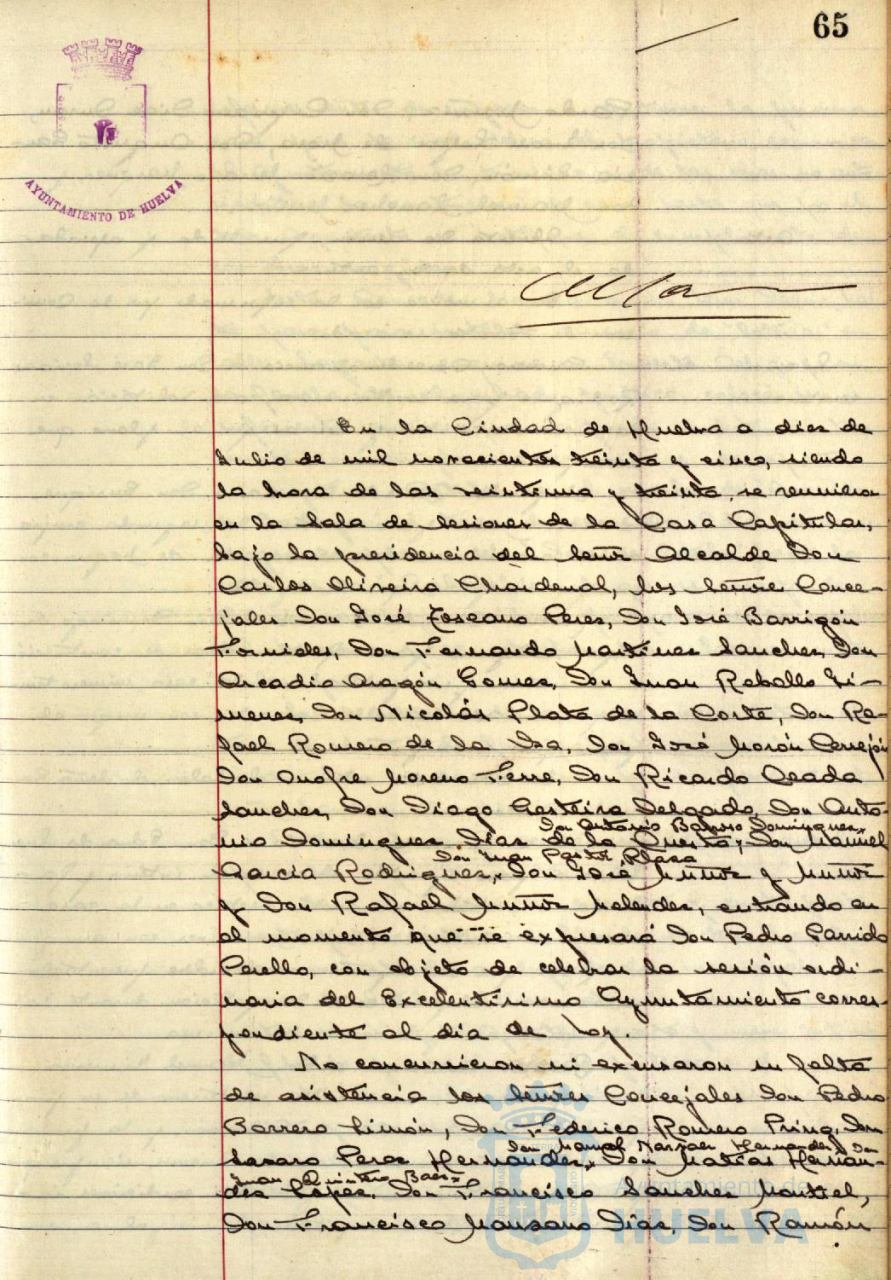 65
AYUNTAMIENTO DE HUELVA
En la Ciudad de Huelva a diez de
Julio de mil novecientos treinta y cinco, siendo
la hora de las veintiuna y treinta, se reunieron
en la Sala de Sesiones de la Casa Capitular,
bajo la presidencia del Señor Alcalde Don
Carlos Oliveira Chardenal, los Señores Conce-
jales Don José Toscano Perez, Don José Barrigón
Fornieles, Don Fernando Martinez Sanchez, Don
Arcadio Aragón Gomez, Don Juan Rebollo Ji-
menez, Don Nicolás Plata de la Corte, Don Ra-
fael Romero de la Isa, Don José Morón Cerrejón
Don Onofre Moreno Ferre, Don Ricardo Ceada
Sanchez, Don Diego Delgado, Don Anto-
Don Antonio Dominguez
nio Dominguez Diaz de la Don Manuel
Don Juan Plaza
Garcia Rodriguez, Don José Muñoz y Muñoz
y Don Rafael Muñoz Melendez, entrando en
el momento que se expresará Don Pedro Garrido
Perelló, con objeto de celebrar la sesión ordi-
naria del Excelentísimo Ayuntamiento corres-
pondiente al dia de hoy.
No concurrieron ni excusaron su falta
de asistencia los Señores Concejales Don Pedro
Borrero Limón, Don Federico Romero Don
Don Manuel Hernandez, Don
Perez Hernandez, Don Matías Hernán-
Juan Quintero Baez
dez Lopez, Don Francisco Sanchez
Don Francisco Manzano Diaz, Don Ramón
Ayuntamiento de
HUELVA